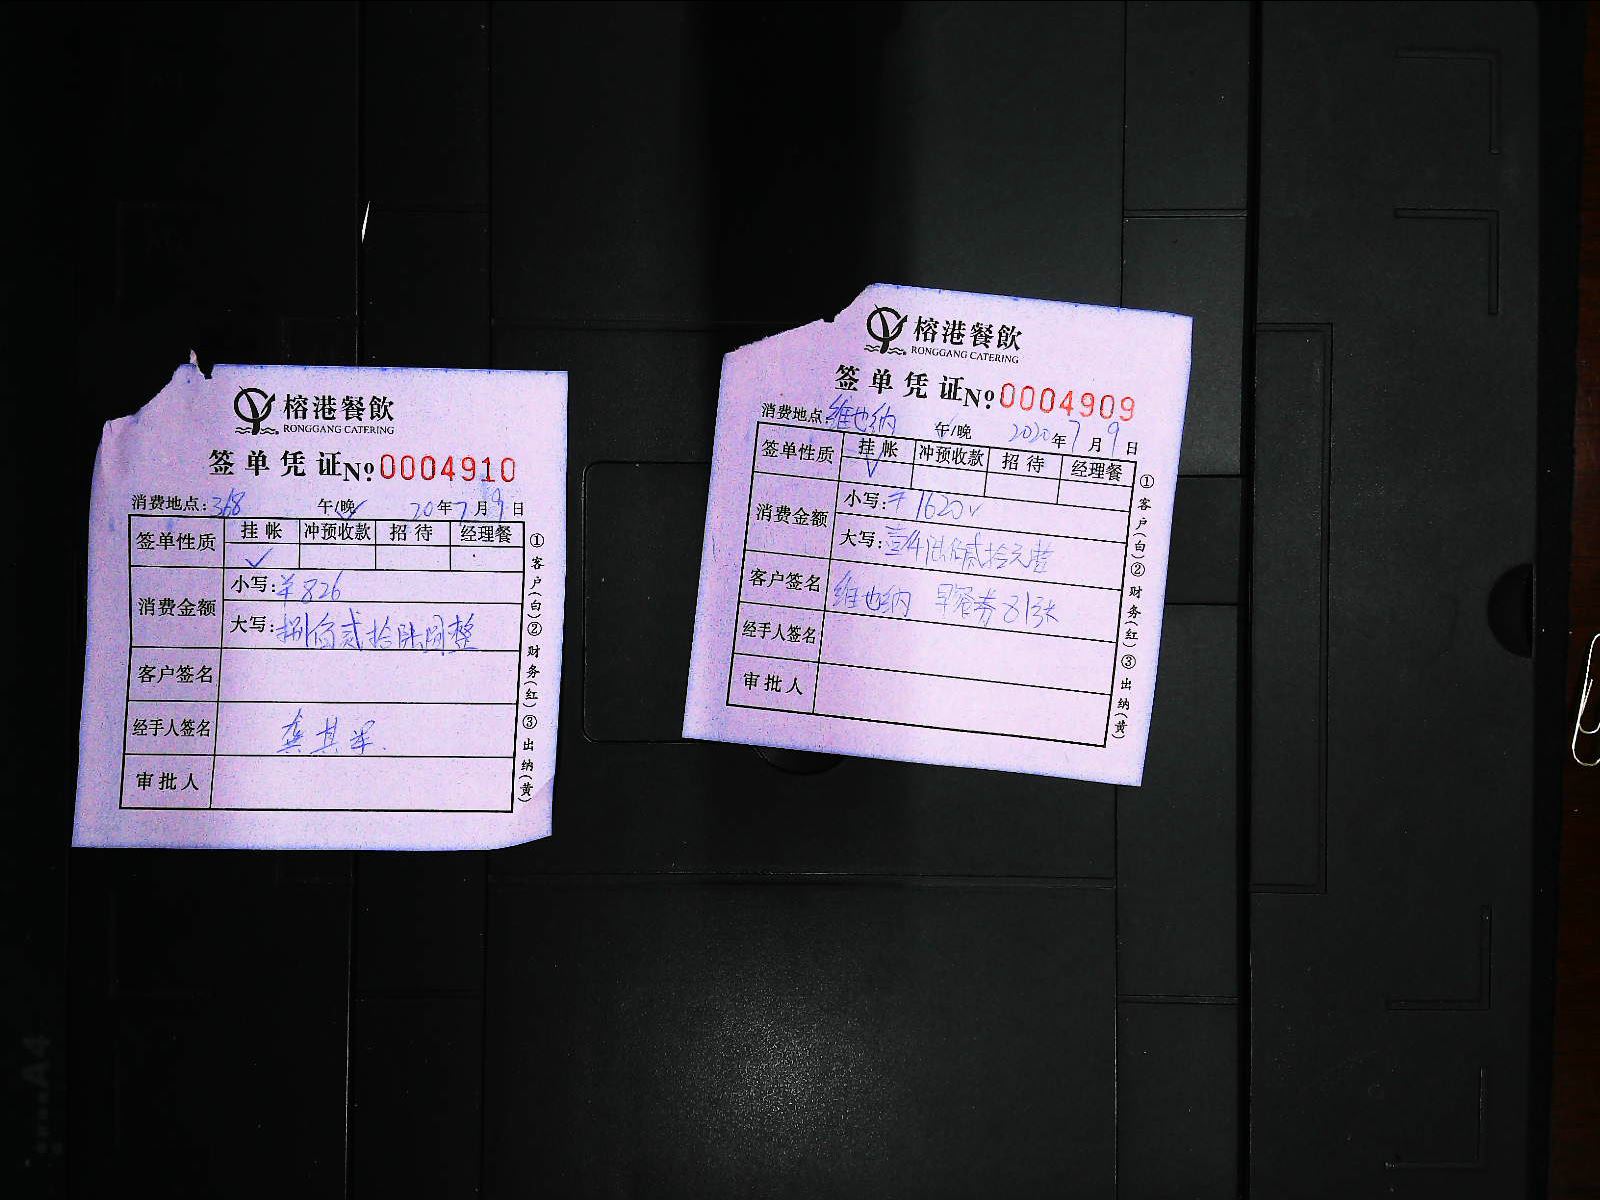 榕港餐飲
RONGGANG CATERING
签单凭证№ 0004910
消费地点:368 午/晚 20年7月9日
签单性质 挂帐 冲预收款 招待 经理餐
✓
消费金额 小写:¥826
大写:捌佰贰拾陆圆整
客户签名
经手人签名 龚其军
审批人
①客户(白)②财务(红)③出纳(黄)
榕港餐飲
RONGGANG CATERING
签单凭证№ 0004909
消费地点:维也纳 午/晚 2020年7月9日
签单性质 挂帐 冲预收款 招待 经理餐
✓
消费金额 小写:¥1620
大写:壹仟陆佰贰拾元整
客户签名 维也纳 早餐券81张
经手人签名
审批人
①客户(白)②财务(红)③出纳(黄)
A4